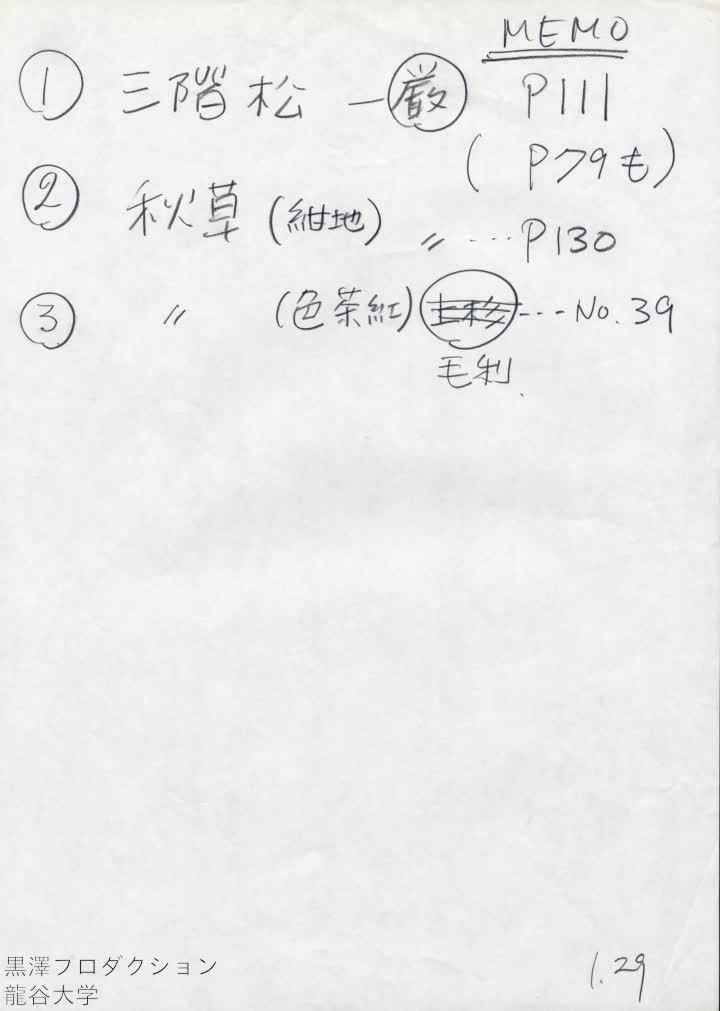 MEMO
① 三階松 ー 厳 P111
( P79も)
② 秋草 (紺地) 〃 … P130
③ 〃 (色茶紅) --- No. 39
毛利
1.29
黒澤プロダクション
龍谷大学